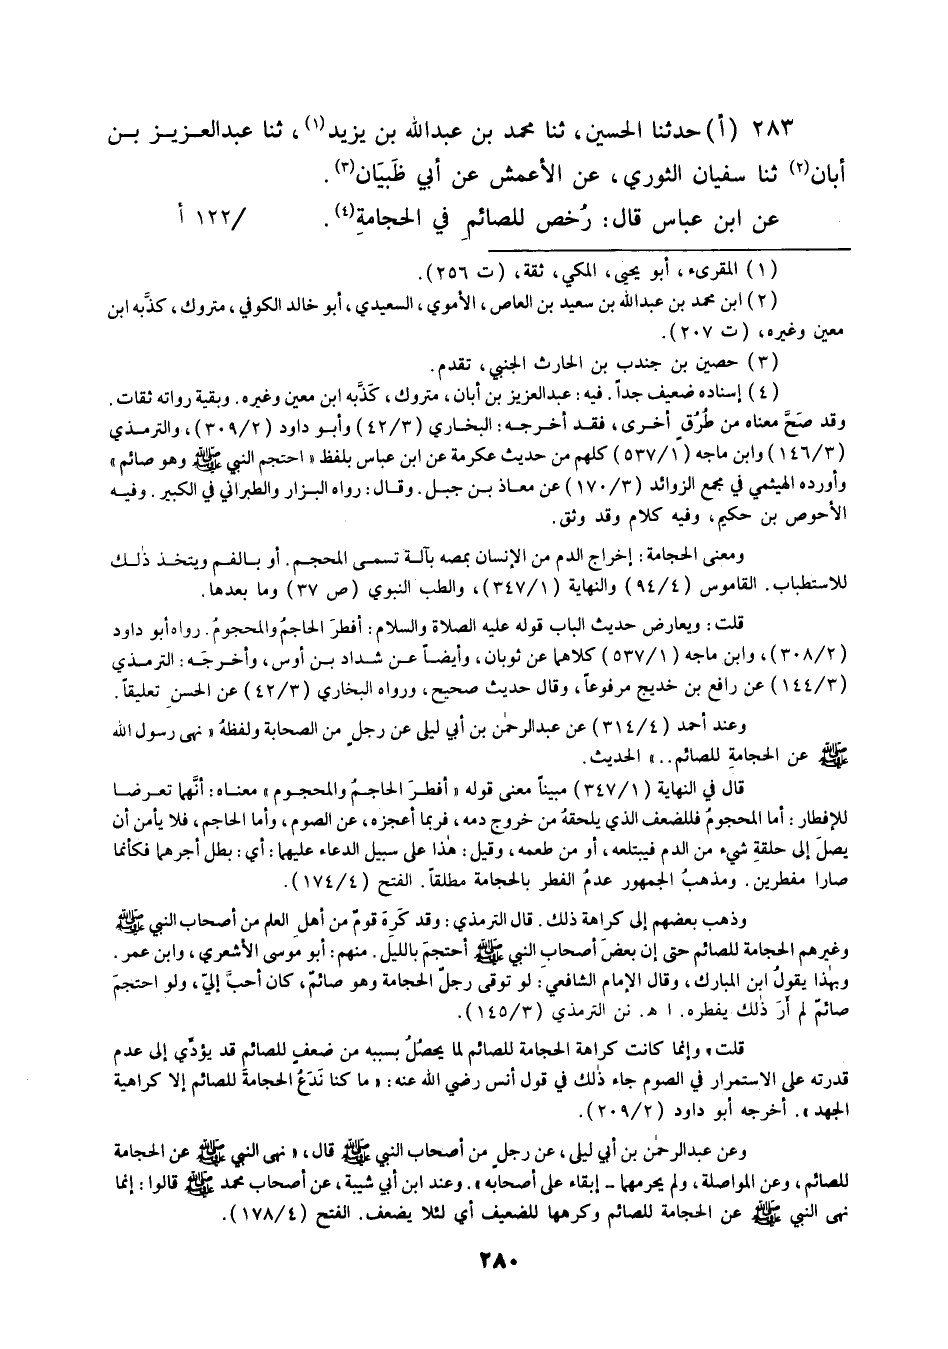 ٢٨٣ (أ) حدثنا الحسين، ثنا محمد بن عبدالله بن يزيد(١)، ثنا عبدالعـزيـز بـن
أبان(٢) ثنا سفيان الثوري، عن الأعمش عن أبي ظَبيَان(٣).
عن ابن عباس قال: رُخص للصائمِ في الحجامةِ(٤). /١٢٢ أ
(١) المقرىء، أبو يحيى، المكي، ثقة، (ت ٢٥٦).
(٢) ابن محمد بن عبدالله بن سعيد بن العاص، الأموي، السعيدي، أبو خالد الكوفي، متروك، كذَّبه ابن
معين وغيره، (ت ٢٠٧).
(٣) حصين بن جندب بن الحارث الجنبي، تقدم.
(٤) إسناده ضعيف جداً. فيه: عبدالعزيز بن أبان، متروك، كَذَّبه ابن معين وغيره. وبقية رواته ثقات.
وقد صَحَّ معناه من طُرُقٍ أخـرى، فقـد أخـرجـه: البخـاري (٤٢/٣) وأبـو داود (٣٠٩/٢)، والتـرمـذي
(١٤٦/٣) وابن ماجه (٥٣٧/١) كلهم من حديث عكرمة عن ابن عباس بلفظ «احتجم النبي ﷺ وهو صائم»
وأورده الهيثمي في مجمع الزوائد (١٧٠/٣) عن معاذ بـن جبـل. وقـال: رواه البـزار والطبراني في الكبير. وفيـه
الأحوص بن حكيم، وفيه كلام وقد وثق.
ومعنى الحجامة: إخراج الدم من الإنسان بمصه بآلـة تسمـى المحجـم. أو بـالفـم ويتخـذ ذلـك
للاستطباب. القاموس (٩٤/٤) والنهاية (٣٤٧/١)، والطب النبوي (ص ٣٧) وما بعدها.
قلت: ويعارض حديث الباب قوله عليه الصلاة والسلام: أفطرَ الحاجمُ والمحجومُ. رواه أبو داود
(٣٠٨/٢)، وابن ماجه (٥٣٧/١) كلاهما عن ثوبان، وأيضـاً عـن شـداد بـن أوس، وأخـرجَـه: الترمـذي
(١٤٤/٣) عن رافع بن خديج مرفوعاً، وقال حديث صحيح، ورواه البخاري (٤٢/٣) عن الحسنِ تعليقاً.
وعند أحمد (٣١٤/٤) عن عبدالرحمٰن بن أبي ليلى عن رجلٍ من الصحابة ولفظهُ «نهى رسول الله
ﷺ عن الحجامةِ للصائم..» الحديث.
قال في النهاية (٣٤٧/١) مبيناً معنى قوله «أفطـرَ الحاجـمُ والمحجـوم» معنـاه: أنَّهما تعـرضـا
للإفطار: أما المحجومُ فللضعف الذي يلحقهُ من خروج دمه، فربما أعجزه، عن الصوم، وأما الحاجم، فلا يأمن أن
يصلَ إلى حلقةِ شيء من الدم فيبتلعه، أو من طعمه، وقيل: هٰذا على سبيل الدعاء عليهما: أي: بطل أجرهما فكأنما
صارا مفطرين. ومذهبُ الجمهور عدمُ الفطر بالحجامة مطلقاً. الفتح (١٧٤/٤).
وذهب بعضهم إلى كراهة ذلك. قال الترمذي: وقد كَرِهَ قومٌ من أهلِ العلم من أصحاب النبي ﷺ
وغيرهم الحجامة للصائم حتى إن بعضَ أصحابِ النبي ﷺ أحتجمَ بالليل. منهم: أبو موسى الأشعري، وابن عمر.
وبهٰذا يقولُ ابن المبارك، وقال الإمام الشافعي: لو توقى رجلٌ الحجامة وهو صائمٌ، كان أحبَّ إليّ، ولو احتجمَ
صائمٌ لم أرَ ذٰلك يفطره. ا هـ. نن الترمذي (١٤٥/٣).
قلت، وإنما كانت كراهة الحجامة للصائم لما يحصُلُ بسببه من ضعفٍ للصائم قد يؤدِّي إلى عدم
قدرته على الاستمرار في الصوم جاء ذٰلك في قول أنس رضي الله عنه: «ما كنا نَدَعُ الحجامةَ للصائم إلا كراهية
الجهد». أخرجه أبو داود (٢٠٩/٢).
وعن عبدالرحمٰن بن أبي ليلى، عن رجلٍ من أصحاب النبي ﷺ قال، «نهى النبي ﷺ عن الحجامة
للصائم، وعن المواصلة، ولم يحرمهما - إبقاء على أصحابه». وعند ابن أبي شيبة، عن أصحاب محمد ﷺ قالوا: إنما
نهى النبي ﷺ عن الحجامة للصائم وكرهها للضعيف أي لئلا يضعف. الفتح (١٧٨/٤).
٢٨٠